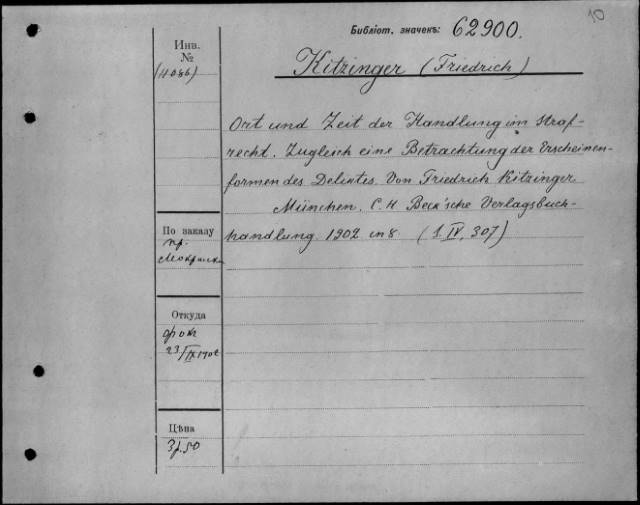 10
Библіот. значекъ: 62900.
Инв.
№
(11086)
Kitzinger (Friedrich)
Ort und Zeit der Handlung im Straf-
recht. Zugleich eine Betrachtung der Erscheinen-
formen des Deliktes. Von Friedrich Kitzinger
München. C. H Beck'sche Verlagsbuch-
handlung. 1902 in 8. (1 IV, 307)
По заказу
пр.
Откуда
23/IX 1902
Цѣна
3р.50